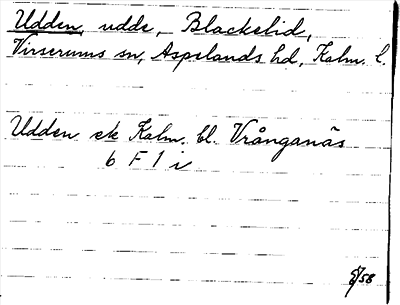 Udden, udde, Blackelid,
Virserums sn, Aspelands hd, Kalm. l.
Udden ek Kalm. bl. Vrånganäs
6 F 1 i
58